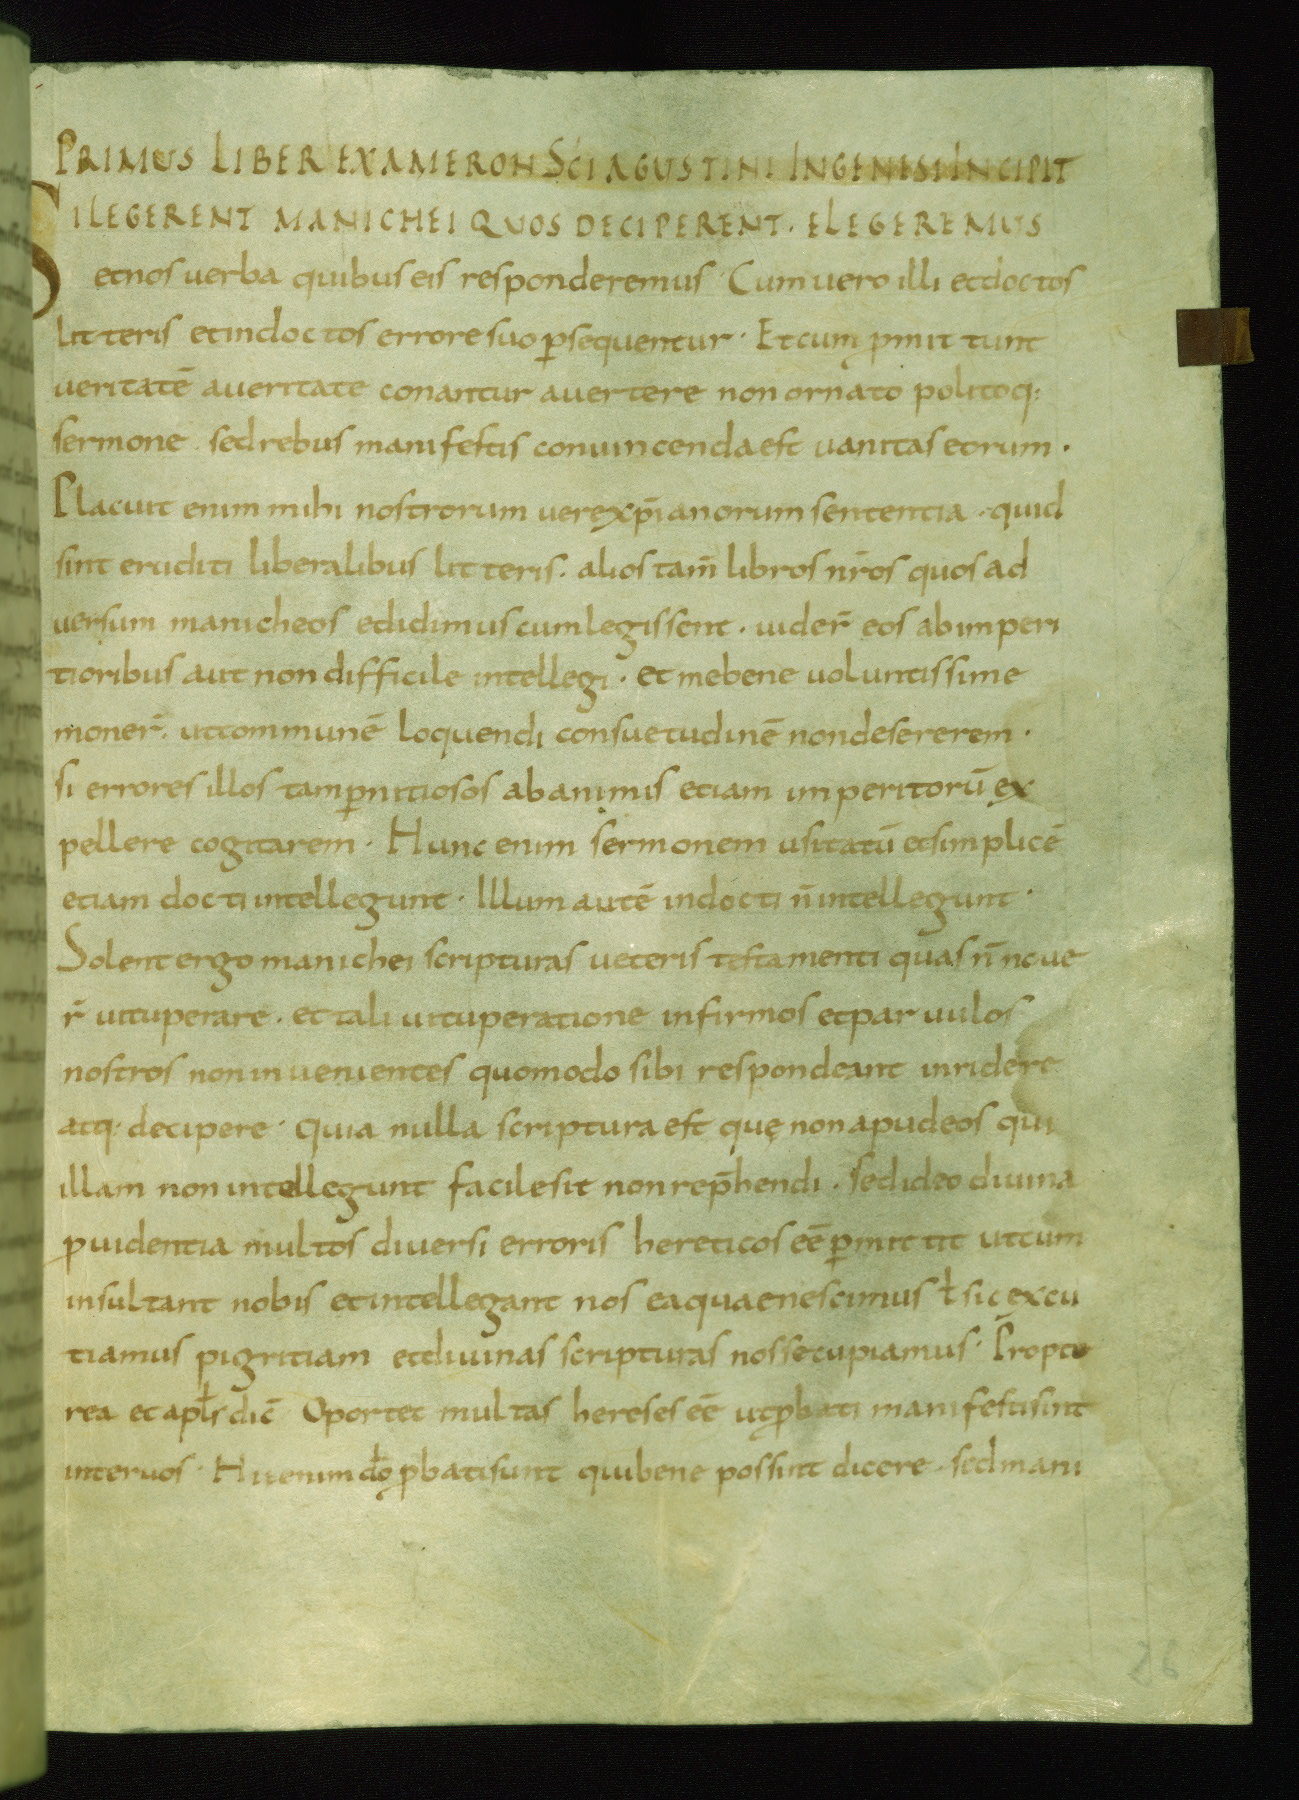 PRIMUS LIBER EXAMERON SCI AGUSTINI IN GENESI INCIPIT
SI LEGERENT MANICHEI QUOS DECIPERENT · ELEGEREMUS
et nos verba quibus eis responderemus · Cum vero illi et doctos
litteris et indoctos errore suo ꝑsequentur · Et cum ꝓmittunt
veritatē a veritate conantur avertere non ornato politoq;
sermone · sed rebus manifestis convincenda est vanitas eorum ·
Placuit enim mihi nostrorum vere xp̄ianorum sententia · quid
sint eruditi liberalibus litteris · alios tam̄ libros nr̄os quos ad
versum manicheos edidimus cum legissent · vider̄ eos ab imperi
tioribus aut non difficile intellegi · et me bene voluntissime
moner̄ · ut commune̅ loquendi consuetudinē non desererem ·
si errores illos tam ꝑnitiosos ab animis etiam imperitorū ex
pellere cogitarem · Hunc enim sermonem usitatū et simplicē
etiam docti intellegunt · Illum autē indocti n̄ intellegunt ·
Solent ergo manichei scripturas veteris testamenti quas n̄ nove
r̄ vituperare · et tali vituperatione infirmos et parvulos
nostros non invenientes quomodo sibi respondeant inridere
atq· decipere · Quia nulla scriptura est quę non apud eos qui
illam non intellegunt facile sit non rep̄hendi · sed ideo divina
ꝓvidentia multos diversi erroris hereticos eē ꝑmittit ut cum
insultant nobis et intellegant nos ea quae nescimus ł sic excu
tiamus pigritiam et divinas scripturas nosse cupiamus · Propte
rea et apłs dic̄ Oportet multas hereses eē ut ꝓbati manifesti sint
inter vos · Hi enim do̅ ꝓbati sunt qui bene possint dicere · sed mani
26